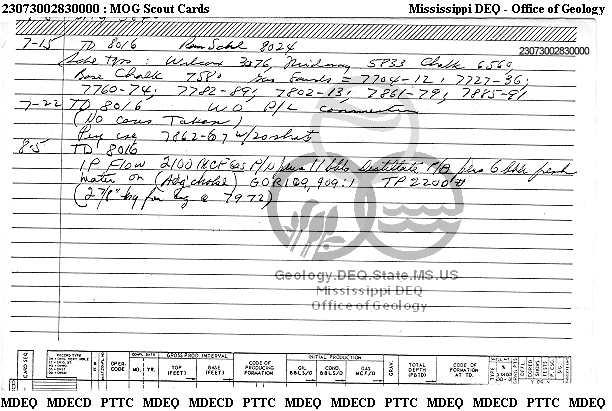 23073002830000 : MOG Scout Cards Mississippi DEQ - Office of Geology
23073002830000
7-15 TD 8016 Schl 8024
Tops : Wilcox 3076, Midway 5833 Chalk 6560
Base Chalk 7580 Gas Sands = 7704-12; 7727-36;
7760-74; 7782-89; 7802-13; 7861-79; 7885-91
7-22 TD 8016 WO P/L connection
(No cores Taken)
Perf csg 7862-67 w/20 shots
8-5 TD 8016
I.P. Flow 2100 MCF Gas P/D plus 11 bbls Distillate P/D plus 6 bbls fresh
water on (Adj choke) GOR 189,909:1 TP 2200#
(2 7/8" tbg for csg @ 7972)
Geology.DEQ.State.MS.US
Mississippi DEQ
Office of Geology
CARD SEQ
RECORD TYPE
OPER. CODE
COMPL. DATE
MO. YR.
GROSS PROD. INTERVAL
TOP (FEET)
BASE (FEET)
CODE OF PRODUCING FORMATION
INITIAL PRODUCTION
OIL BBLS/D
COND. BBLS/D
GAS MCF/D
GRAV.
TOTAL DEPTH (PBTD)
CODE OF FORMATION AT TD.
MDEQ MDECD PTTC MDEQ MDECD PTTC MDEQ MDECD PTTC MDEQ